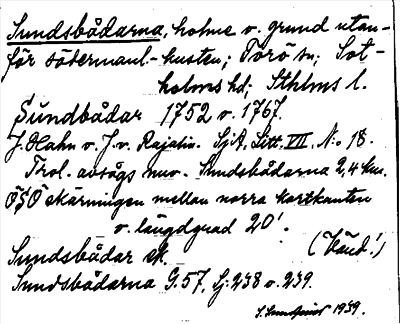 Sundsbådarna, holme o. grund utan-
för södermanl-kusten; Torö sn; Sot-
holms hd; Sthlms l.
Sundbådar 1752 o. 1767.
J. Hahn o. J. v. Rajalin. SjA, Litt. VII, No: 18.
Trol. avsågs nuv. Sundsbådarna 2,4 km.
ÖSÖ skärningen mellan norra kartkanten
o. längdgrad 20'.
Sundsbådar ek. (Känd!)
Sundsbådarna G. 57, Sj: 238 o. 239.
1939.